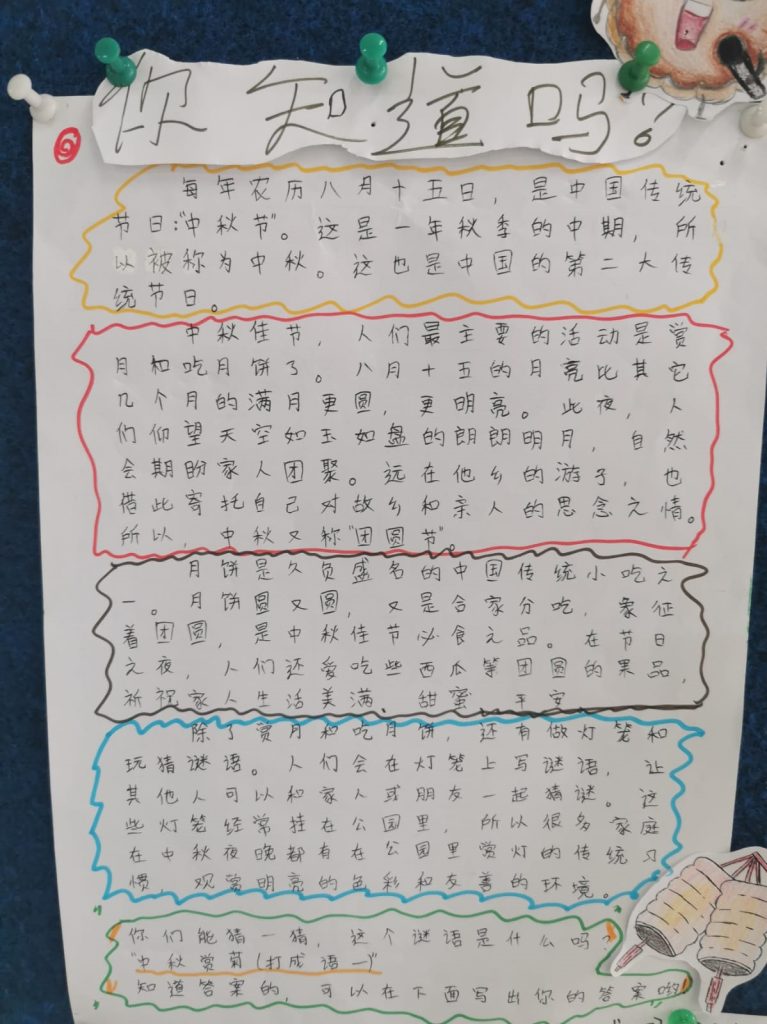 你知道吗?
每年农历八月十五日，是中国传统
节日:"中秋节"。这是一年秋季的中期，所
以被称为中秋。这也是中国的第二大传
统节日。
中秋佳节，人们最主要的活动是赏
月和吃月饼了。八月十五的月亮比其它
几个月的满月更圆，更明亮。此夜，人
们仰望天空如玉如盘的朗朗明月，自然
会期盼家人团聚。远在他乡的游子，也
借此寄托自己对故乡和亲人的思念之情。
所以，中秋又称"团圆节"。
月饼是久负盛名的中国传统小吃之
一。月饼圆又圆，又是合家分吃，象征
着团圆，是中秋佳节必食之品。在节日
之夜，人们还爱吃些西瓜等团圆的果品，
祈祝家人生活美满、甜蜜、平安。
除了赏月和吃月饼，还有做灯笼和
玩猜谜语。人们会在灯笼上写谜语，让
其他人可以和家人或朋友一起猜谜。这
些灯笼经常挂在公园里，所以很多家庭
在中秋夜晚都有在公园里赏灯的传统习
惯，观赏明亮的色彩和友善的环境。
你们能猜一猜，这个谜语是什么吗?
"中秋赏菊(打成语一)"
知道答案的，可以在下面写出你的答案哟!